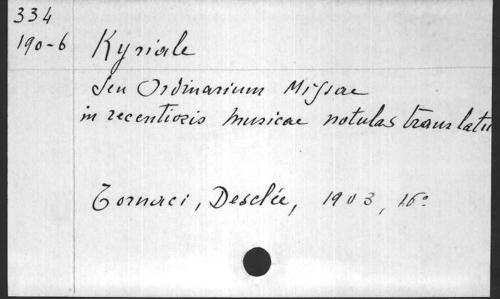 334
190-6
Kyriale
seu Ordinarium Missae
in recentioris musicae notulas translatu
Tornaci, Desclée, 1903, 16º